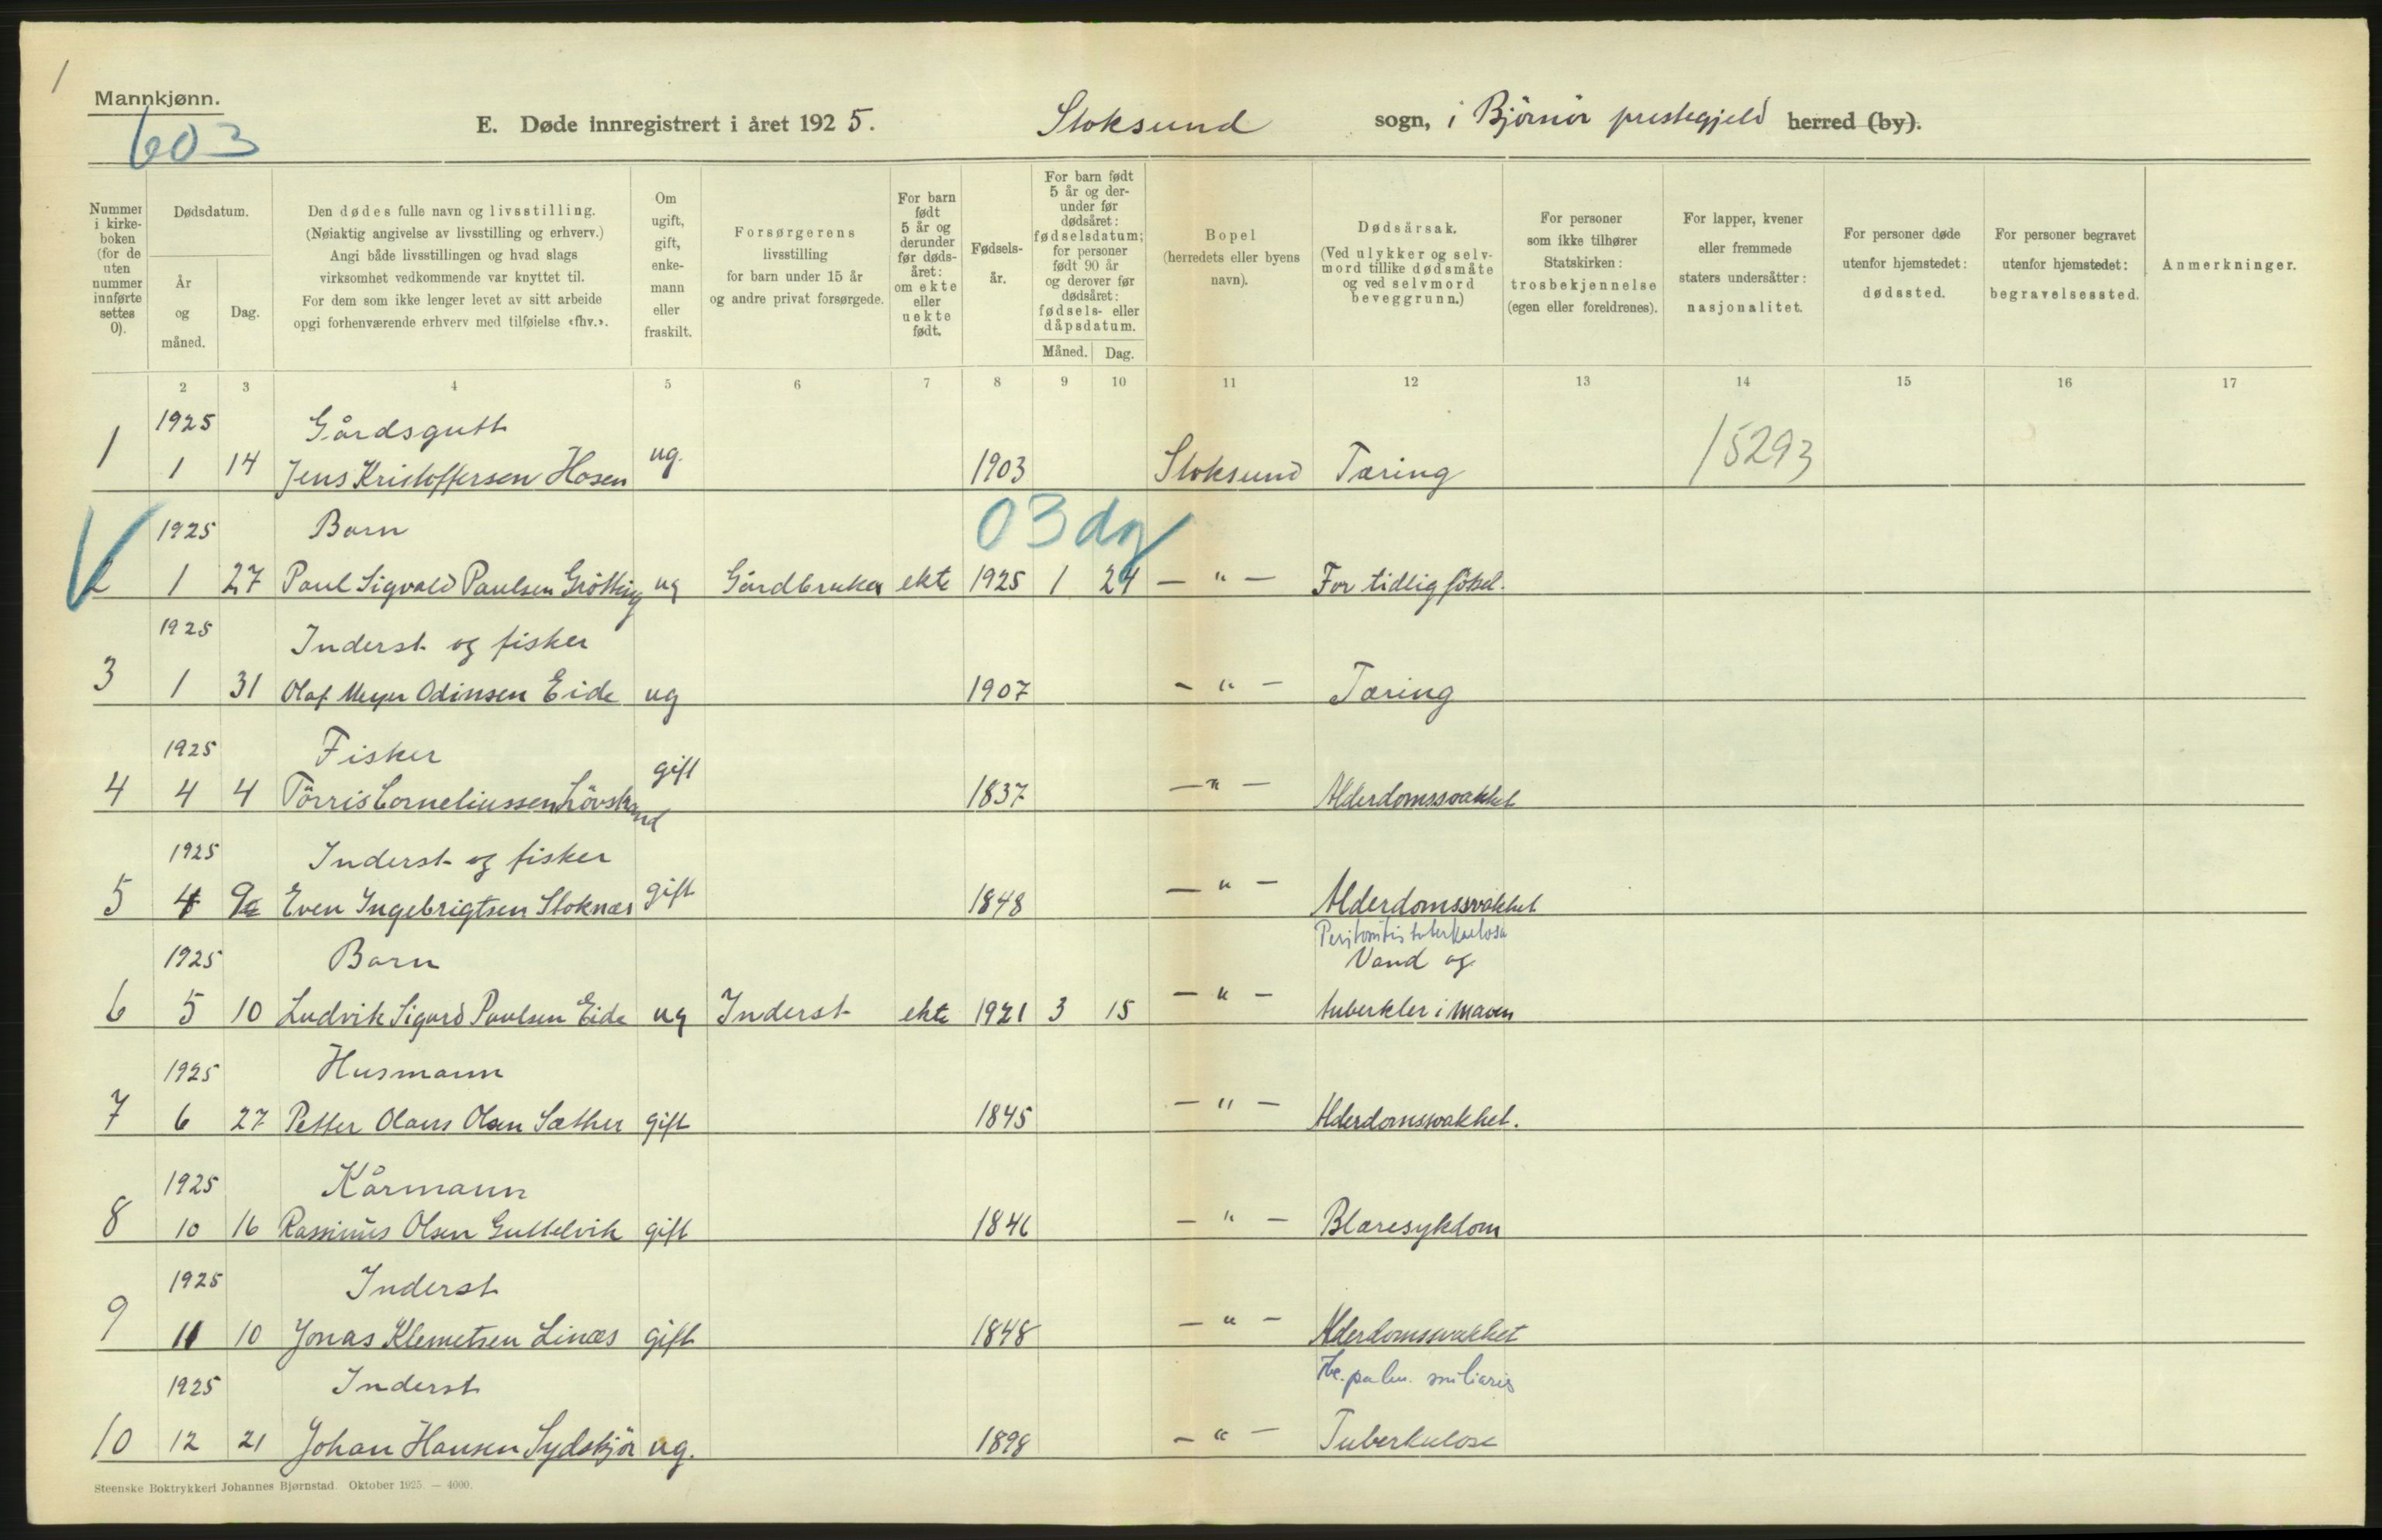 1
Mannkjønn.
603
E. Døde innregistrert i året 1925. Stoksund sogn, i Björnör prestegjeld herred (by).
Nummer i kirke- boken (for de uten nummer innførte settes 0).
Dødsdatum.
År og måned.
Dag.
Den dødes fulle navn og livsstilling.
(Nøiaktig angivelse av livsstilling og erhverv.)
Angi både livsstillingen og hvad slags
virksomhet vedkommende var knyttet til.
For dem som ikke lenger levet av sitt arbeide
opgi forhenværende erhverv med tilføielse «fhv.».
Om ugift, gift, enke- mann eller fraskilt.
Forsørgerens
livsstilling
for barn under 15 år
og andre privat forsørgede.
For barn født 5 år og derunder før døds- året: om ekte eller uekte født.
Fødsels- år.
For barn født 5 år og der- under før dødsåret: fødselsdatum; for personer født 90 år og derover før dødsåret: fødsels- eller dåpsdatum.
Måned. Dag.
Bopel
(herredets eller byens
navn).
Dødsårsak.
(Ved ulykker og selv-
mord tillike dødsmåte
og ved selvmord
beveggrunn.)
For personer
som ikke tilhører
Statskirken:
trosbekjennelse
(egen eller foreldrenes).
For lapper, kvener
eller fremmede
staters undersåtter:
nasjonalitet.
For personer døde
utenfor hjemstedet:
dødssted.
For personer begravet
utenfor hjemstedet:
begravelsessted.
Anmerkninger.
2 3 4 5 6 7 8 9 10 11 12 13 14 15 16 17
1925 Gårdsgutt
1 1 14 Jens Kristoffersen Hosen ug. 1903 Stoksund Tæring 15293
1925 Barn 03 dg
2 1 27 Paul Sigvald Paulsen Grötting ug Gårdbruker ekte 1925 1 24 — " — For tidlig födsel.
1925 Inderst og fisker
3 1 31 Olaf Meyer Odinsen Eide ug 1907 — " — Tæring
1925 Fisker
4 4 4 Törris Corneliussen Lövstrand gift 1837 — " — Alderdomssvakhet
1925 Inderst og fisker
5 4 9 Even Ingebrigtsen Stoknes gift 1848 — " — Alderdomssvakhet
Peritonitis tuberkulosa
1925 Barn Vand og
6 5 10 Ludvik Sigurd Paulsen Eide ug Inderst ekte 1921 3 15 — " — tuberkler i maven
1925 Husmann
7 6 27 Petter Olaus Olsen Sæther gift 1845 — " — Alderdomssvakhet.
1925 Kårmann
8 10 16 Rasmus Olsen Guttelvik gift 1846 — " — Blæresykdom
1925 Inderst
9 11 10 Jonas Klemetsen Linæs gift 1848 — " — Alderdomssvakhet
1925 Inderst Tbc. pulm. miliaris
10 12 21 Johan Hansen Sydskjör ug. 1898 — " — Tuberkulose
Steenske Boktrykkeri Johannes Bjørnstad. Oktober 1925. — 4000.